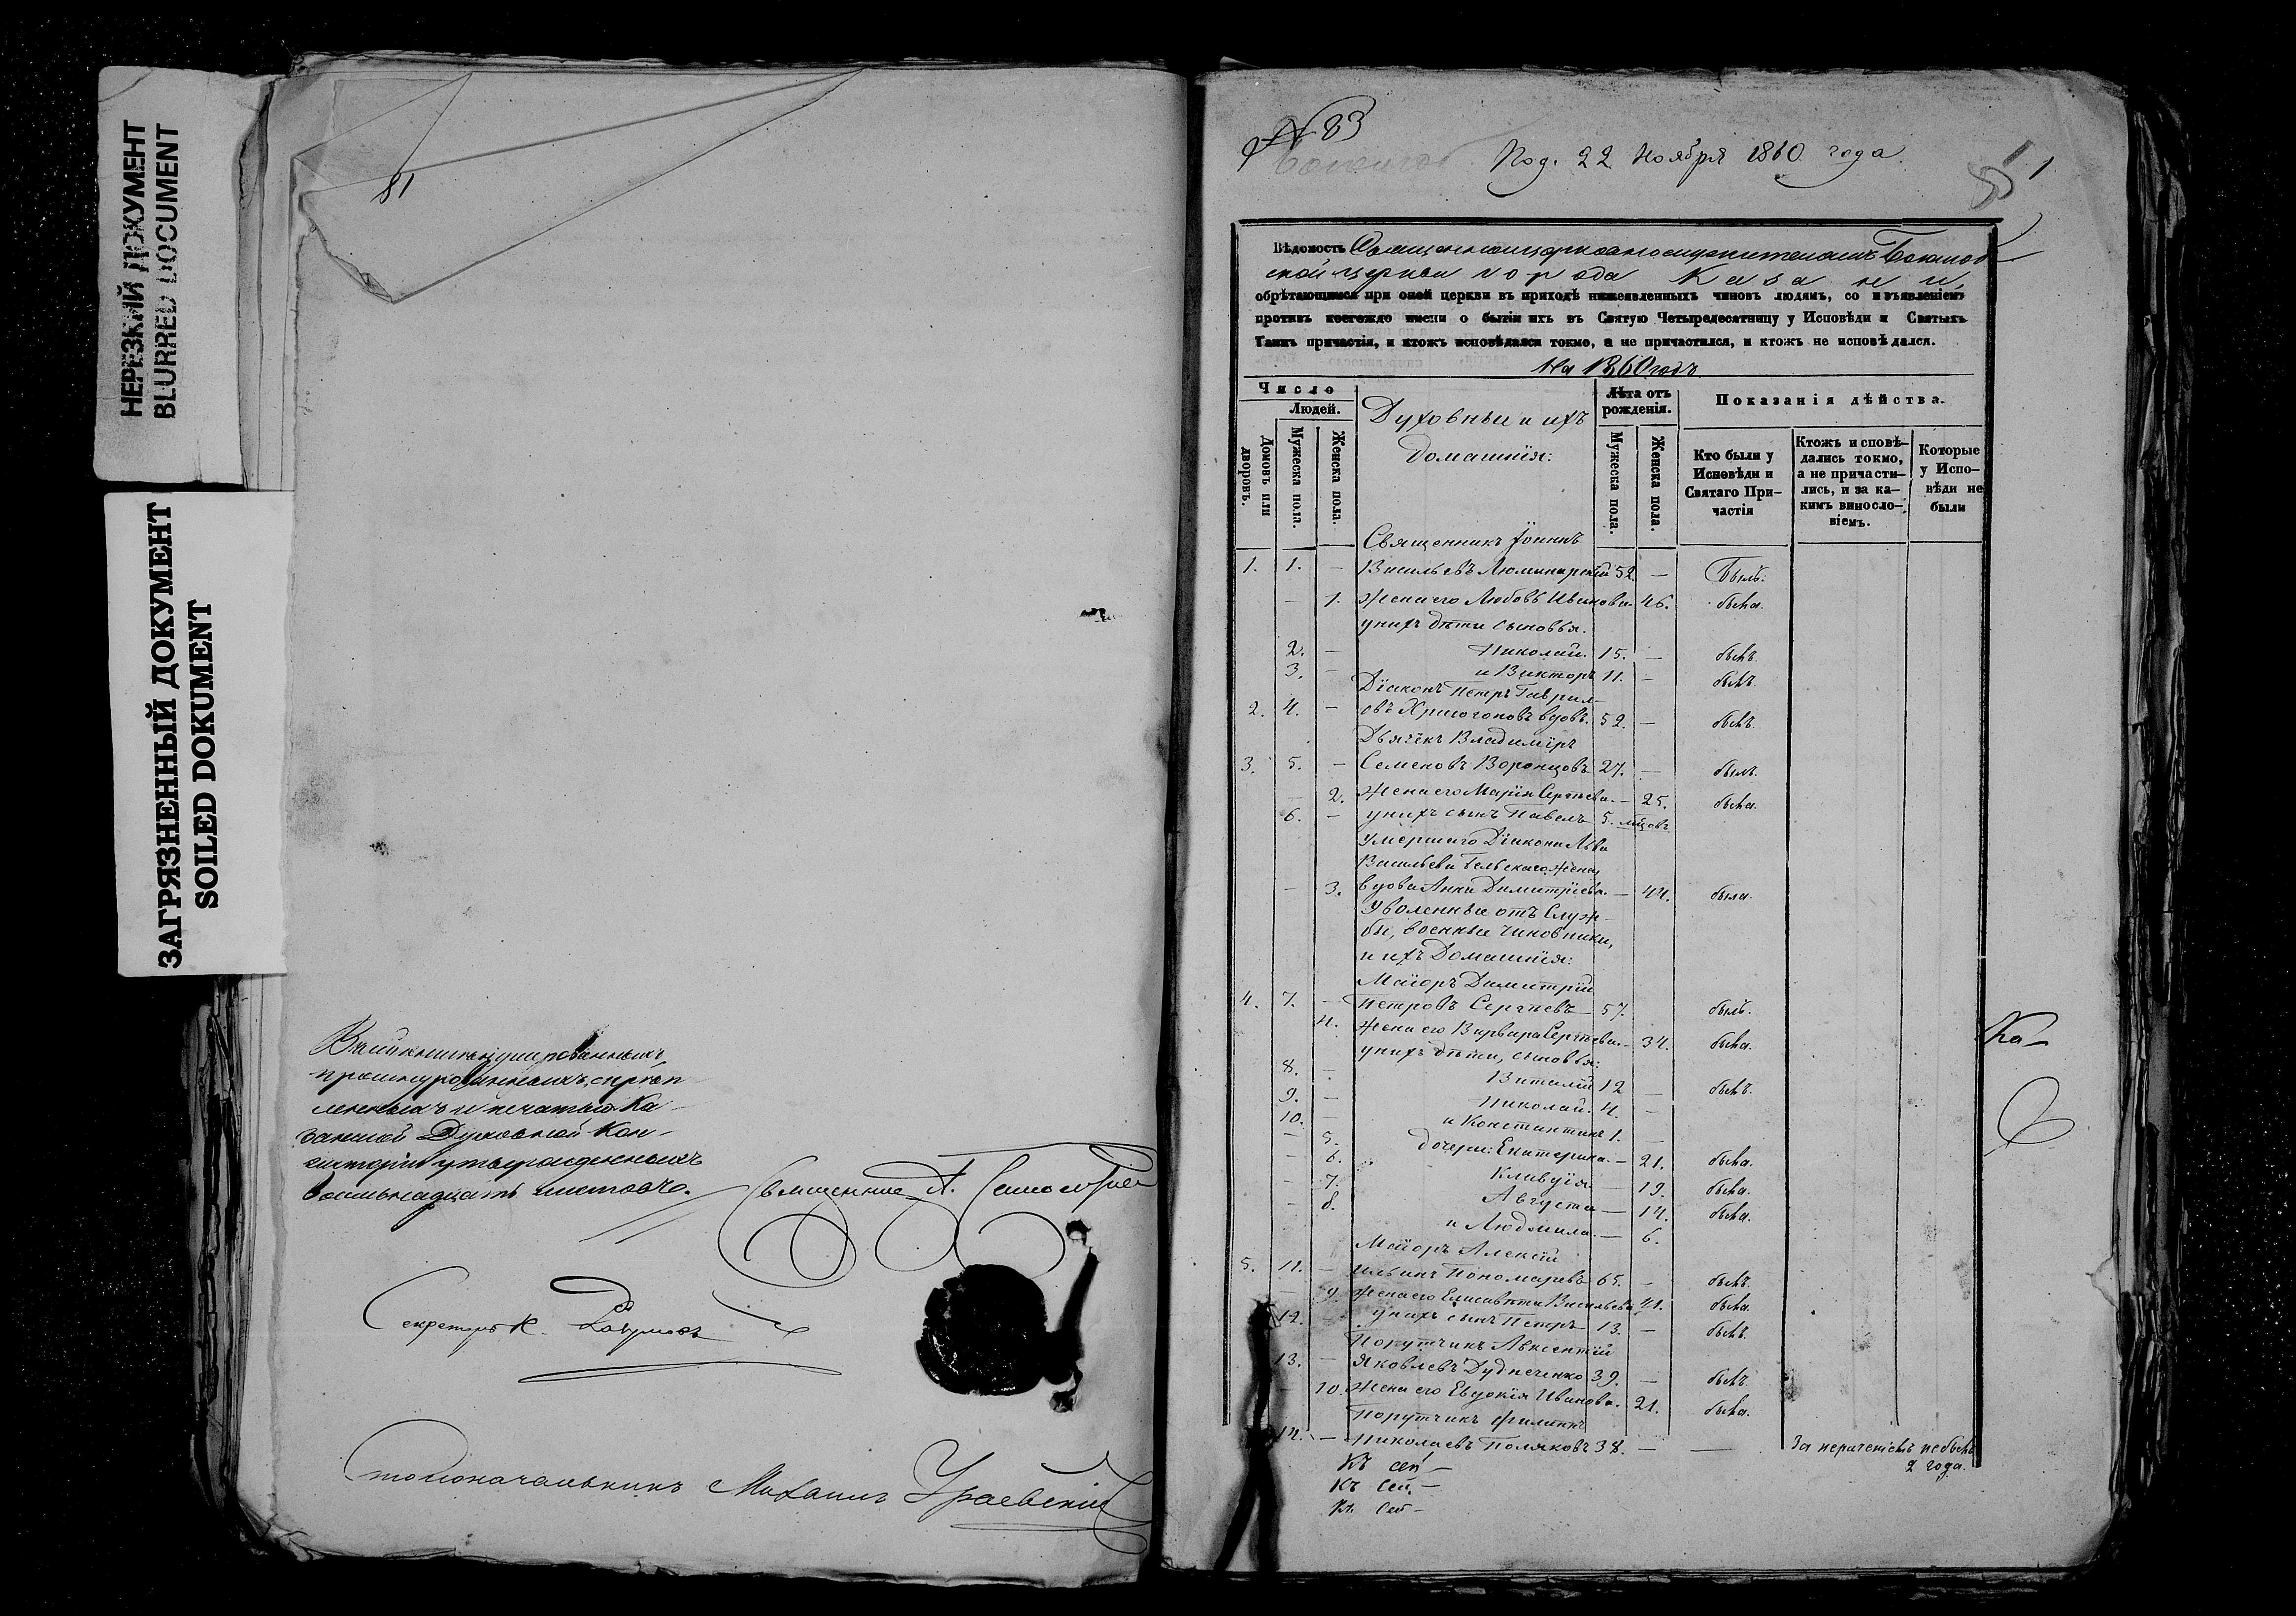 НЕРЕЗКИЙ ДОКУМЕНТ
BLURRED DOCUMENT
ЗАГРЯЗНЕННЫЙ ДОКУМЕНТ
SOILED DOKUMENT
81
прошнурованныхъ, скрѣп
ленныхъ и печатью Ка-
занской Духовной Кон-
систоріи утвержденныхъ
восемьнадцать листовъ.
Священникъ А.
Секретарь К.
Столоначальникъ Михаилъ
№ 83
Под. 22 Ноября 1860 года.
1
Вѣдомость
ской церкви города Казани,
обрѣтающимся при оной церкви въ приходѣ нижеявленныхъ чиновъ людямъ, со изъявленіемъ
противъ коегождо имени о бытіи ихъ въ Святую Четыредесятницу у Исповѣди и Святыхъ
Таинъ причастія, и ктожъ исповѣдался токмо, а не причастился, и ктожъ не исповѣдался.
На 1860 годъ
Число
Людей.
Домовъ или дворовъ.
Мужеска пола.
Женска пола.
Духовные и ихъ
домашнія:
Лѣта отъ рожденія.
Мужеска пола.
Женска пола.
Показанія дѣйства.
Кто были у Исповѣди и Святаго При-частія
Ктожъ исповѣ-дались токмо, а не причасти-лись, и за ка-кимъ винословіемъ.
Которые у Испо-вѣди не были
Священникъ Іоаннъ
1. 1. — Васильевъ Люминарскій 52 — Былъ.
— 1. Жена его Любовь Иванова. 46. была.
у нихъ дѣти сыновья.
2. — Николай. 15. — былъ.
3. — и Викторъ 11. — былъ.
Діаконъ Петръ Гаврил-
2. 4. — овъ Хрисогоновъ вдовъ. 52. — былъ.
Дьячекъ Владимiръ
3. 5. — Семеновъ Воронцовъ 27. — былъ.
— 2. Жена его Марія Сергѣева. — 25. была.
6. — у нихъ сынъ Павелъ 5. мѣсяцовъ
Умершаго Діакона Льва
Васильева Бельскаго жена,
— 3. вдова Анна Димитріева. — 44. была.
Уволенные отъ Служ-
бы, военные чиновники,
и ихъ Домашнія:
Маіоръ Димитрій
4. 7. — Петровъ Сергѣевъ 57. былъ.
4. Жена его Варвара Сергѣева. — 34. была.
у нихъ дѣти, сыновья:
8. — Виталій 12 — былъ.
9. — Николай. 4. —
10. — и Константинъ 1. —
— 5. дочери: Екатерина. — 21. была.
— 6. Клавдія. — 19. была.
— 7. Августа — 14. была.
— 8. и Людмила. — 6.
Маіоръ Алексій
5. 11. — Ильинъ Пономаревъ 65. — былъ.
9. Жена его Елисавета Васильева 41. была.
12. у нихъ сынъ Петръ 13. — былъ.
Порутчикъ Авксентій
13. — Яковлевъ Дудниченко 39. — былъ.
— 10. Жена его Евдокія Иванова. 21. была.
Порутчикъ Филиппъ
14. — Николаевъ Поляковъ 38. — — За нераченіемъ не былъ
2 года.
Къ сей —
Къ сей —
Къ сей —
Ка-